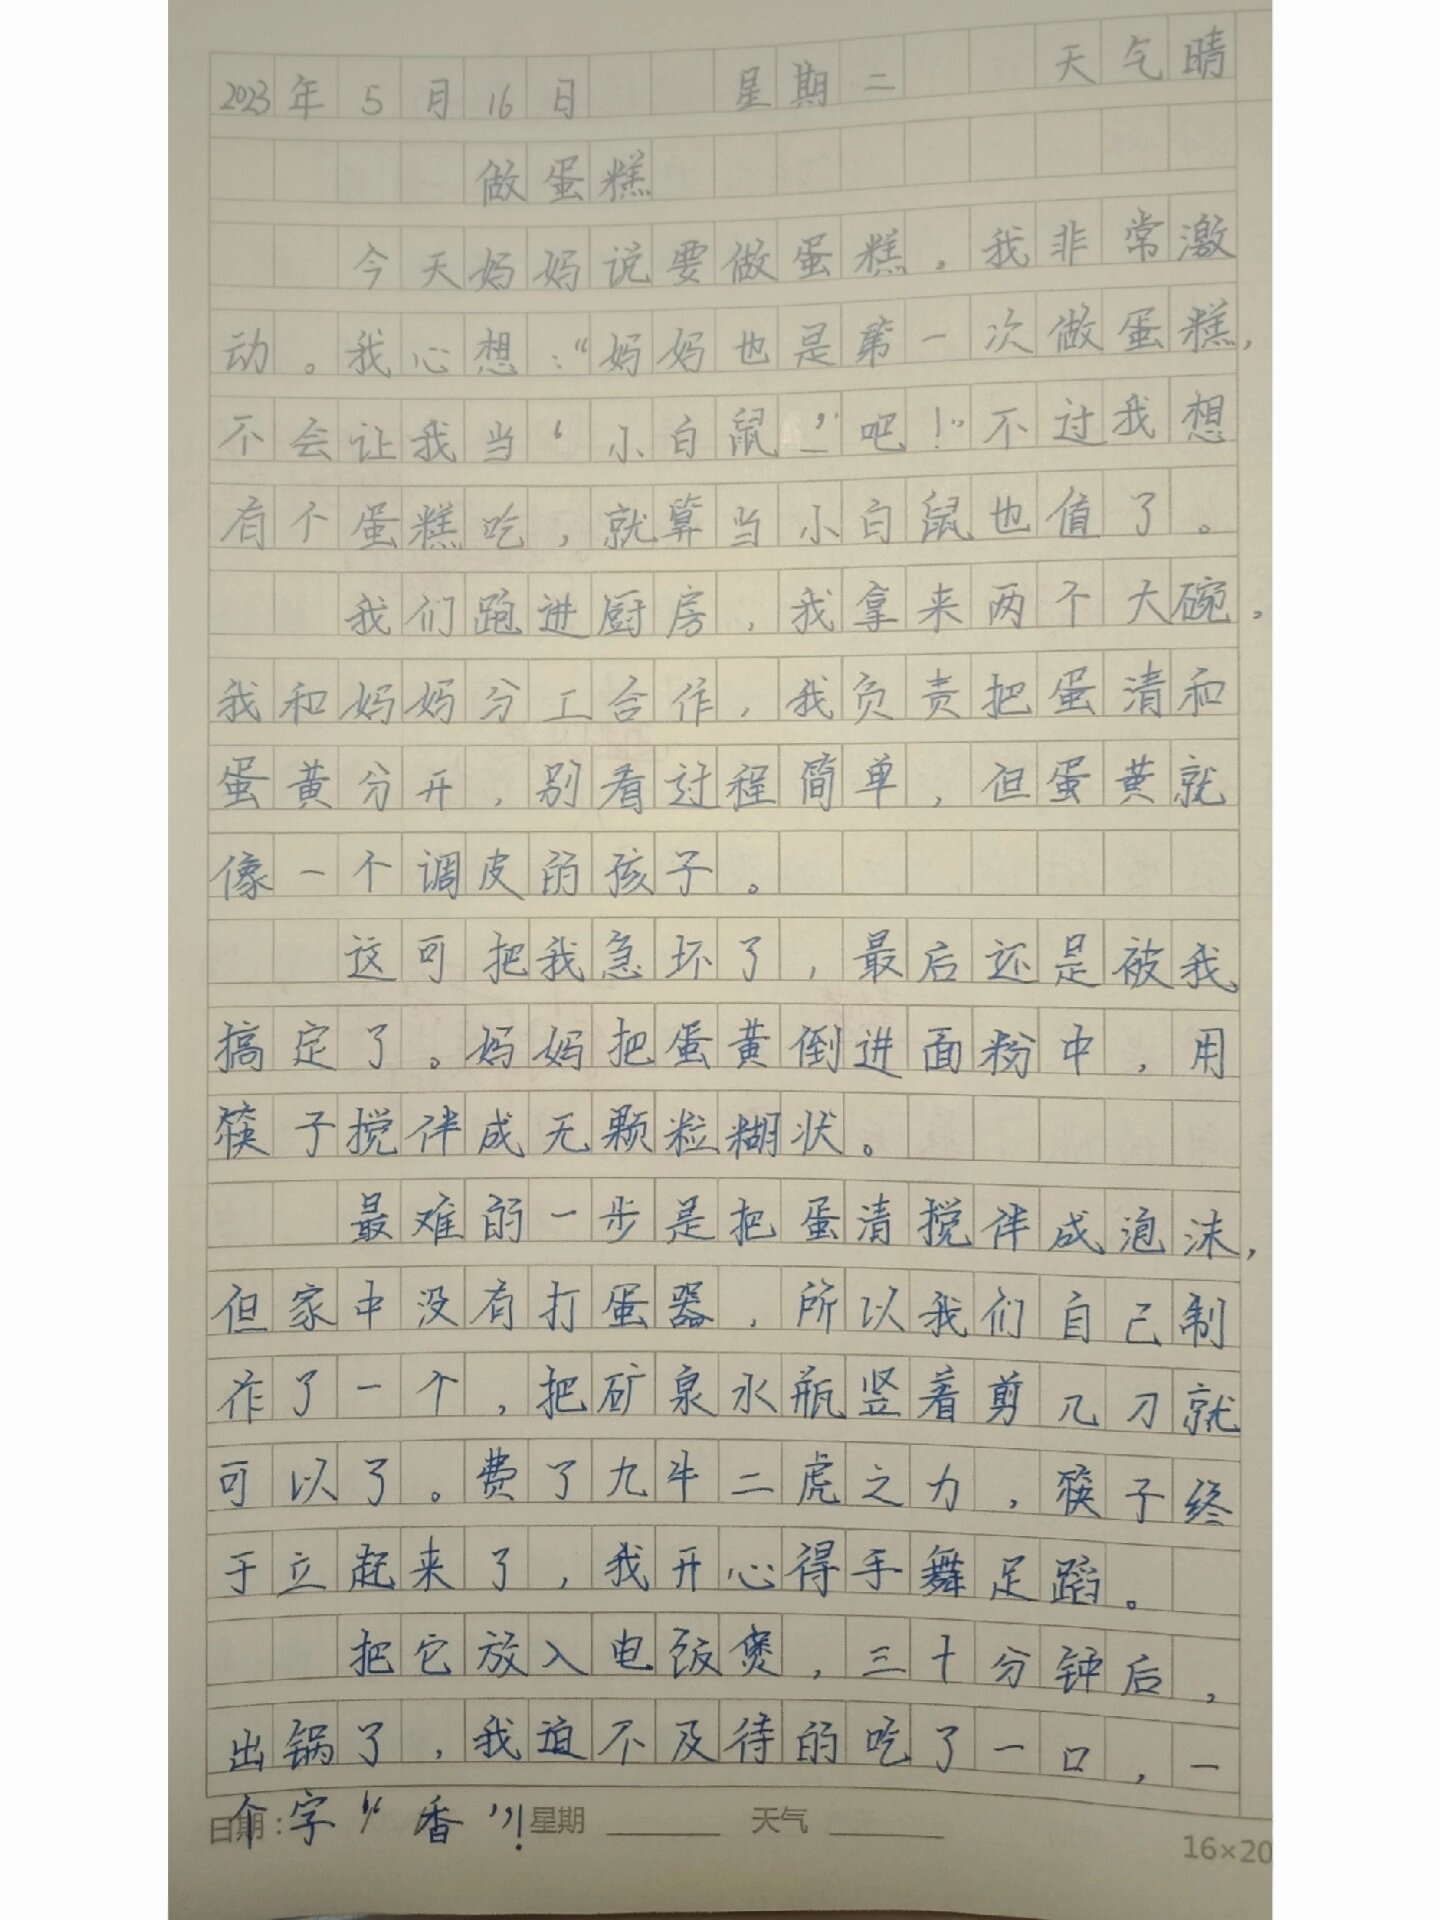 2023年5月16日 星期二 天气晴
做蛋糕
今天妈妈说要做蛋糕，我非常激
动。我心想：“妈妈也是第一次做蛋糕，
不会让我当‘小白鼠’吧！”不过我想
有个蛋糕吃，就算当小白鼠也值了。
我们跑进厨房，我拿来两个大碗，
我和妈妈分工合作，我负责把蛋清和
蛋黄分开，别看过程简单，但蛋黄就
像一个调皮的孩子。
这可把我急坏了，最后还是被我
搞定了。妈妈把蛋黄倒进面粉中，用
筷子搅伴成无颗粒糊状。
最难的一步是把蛋清搅伴成泡沫，
但家中没有打蛋器，所以我们自己制
作了一个，把矿泉水瓶竖着剪几刀就
可以了。费了九牛二虎之力，筷子终
于立起来了，我开心得手舞足蹈。
把它放入电饭煲，三十分钟后，
出锅了，我迫不及待的吃了一口，一
个字“香”！
日期： 星期 天气
16×20